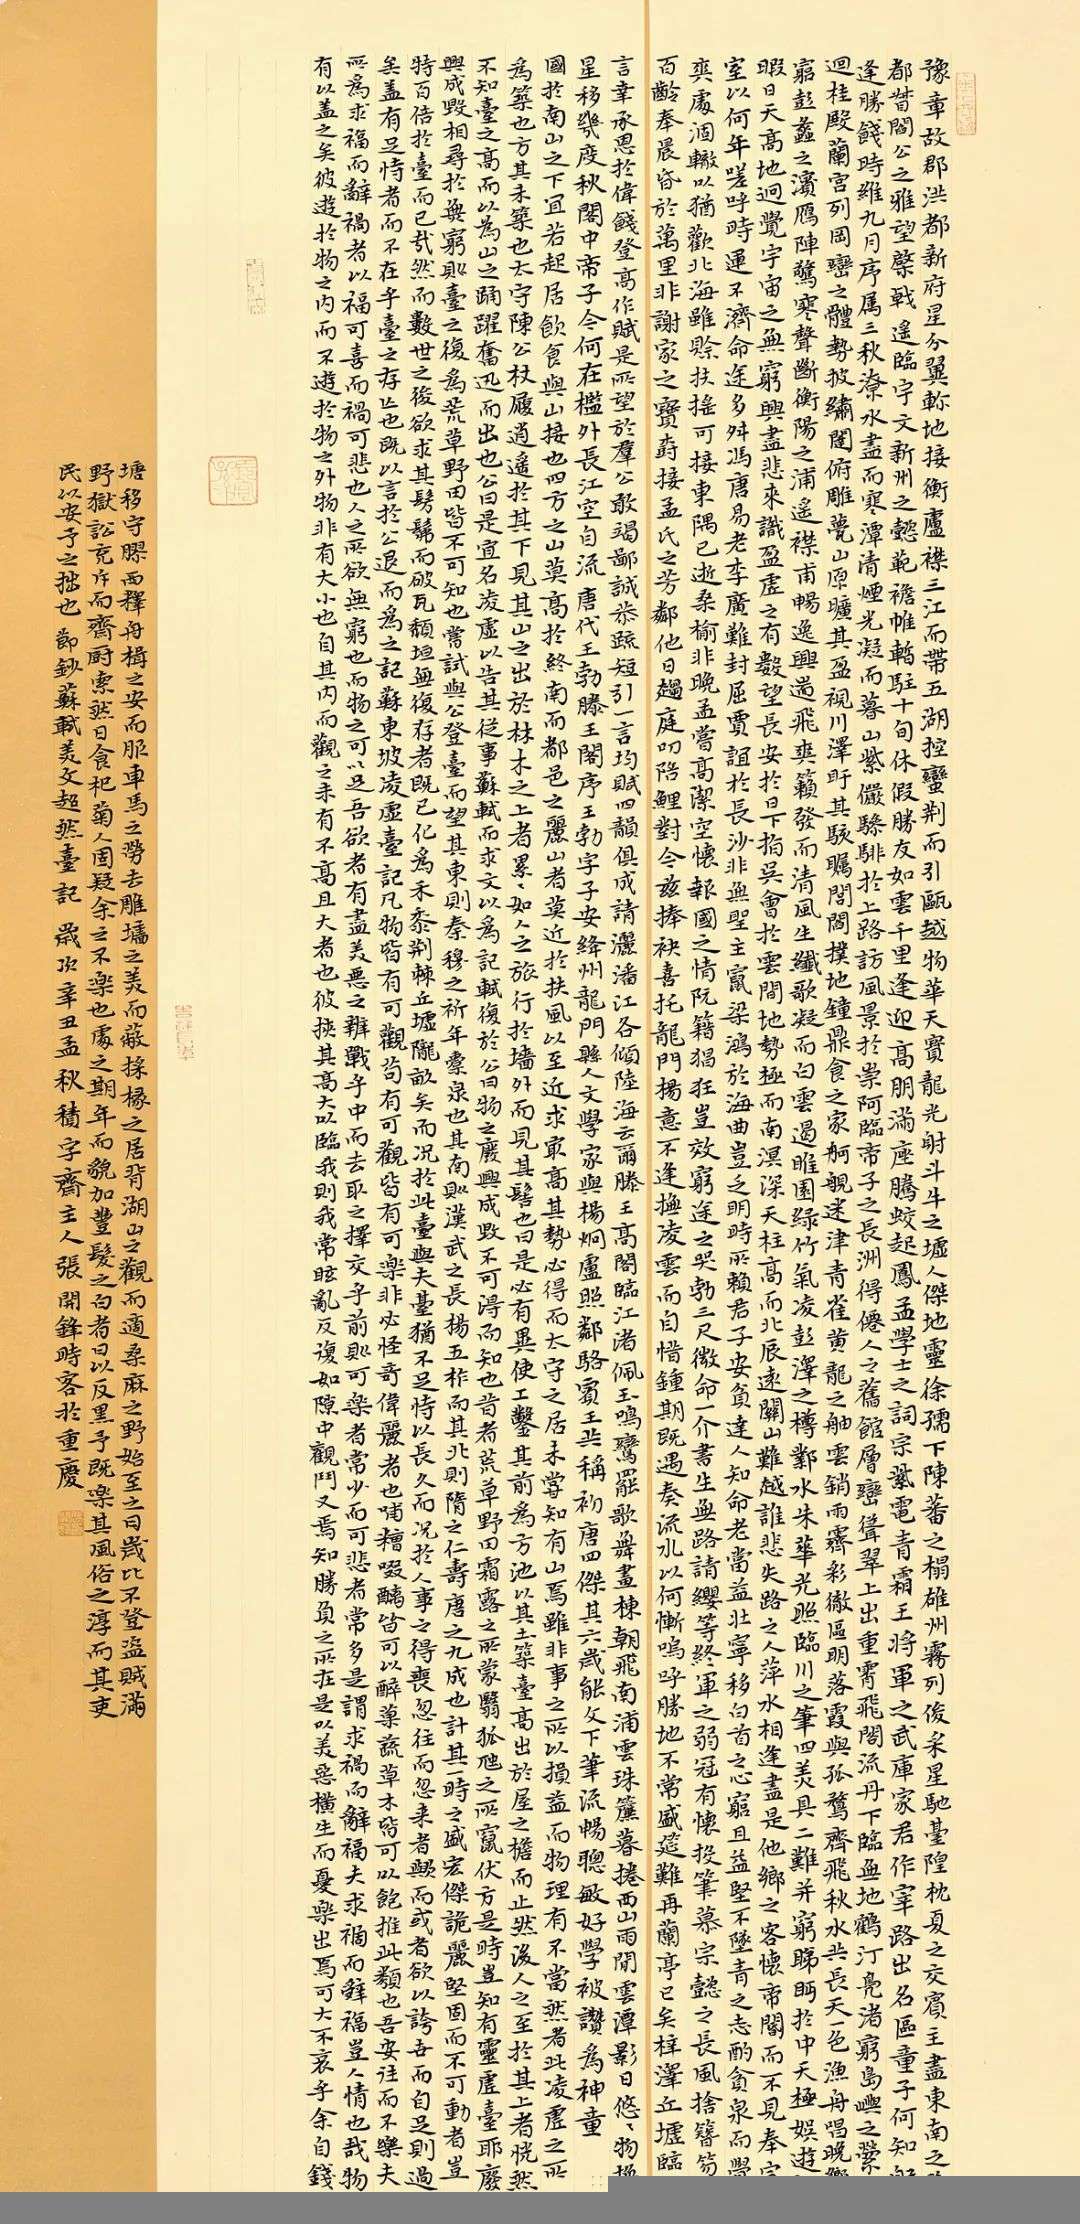 豫章故郡洪都新府星分翼軫地接衡廬襟三江而帶五湖控蠻荊而引甌越物華天寶龍光射斗牛之墟人傑地靈徐孺下陳蕃之榻雄州霧列俊采星馳臺隍枕夏之交賓主盡東南之
都督閻公之雅望棨戟遙臨宇文新州之懿範襜帷暫駐十旬休假勝友如雲千里逢迎高朋滿座騰蛟起鳳孟學士之詞宗紫電青霜王將軍之武庫家君作宰路出名區童子何知
逢勝餞時維九月序属三秋潦水盡而寒潭清煙光凝而暮山紫儼驂騑於上路訪風景於崇阿臨帝子之長洲得僊人之舊館層巒聳翠上出重霄飛閣流丹下臨無地鶴汀鳧渚窮島嶼之縈
迴桂殿蘭宮列岡巒之體勢披繡闥俯雕甍山原曠其盈視川澤盱其駭矚閭閻撲地鐘鼎食之家舸艦迷津青雀黃龍之舳雲銷雨霽彩徹區明落霞與孤鶩齊飛秋水共長天一色漁舟唱晚響
窮彭蠡之濱鴈陣驚寒聲斷衡陽之浦遙襟甫暢逸興遄飛爽籟發而清風生纖歌凝而白雲遏睢園緑竹氣凌彭澤之樽鄴水朱華光照臨川之筆四美具二難并窮睇眄於中天極娛遊
暇日天高地迥覺宇宙之無窮興盡悲來識盈虛之有數望長安於日下指吳會於雲間地勢極而南溟深天柱高而北辰遠關山難越誰悲失路之人萍水相逢盡是他鄉之客懷帝閽而不見奉宣
室以何年嗟呼時運不濟命途多舛馮唐易老李廣難封屈賈誼於長沙非無聖主竄梁鴻於海曲豈乏明時所賴君子安貧達人知命老當益壯寧移白首之心窮且益堅不墜青之志酌貪泉而覺
爽處涸轍以猶歡北海雖賒扶搖可接東隅已逝桑榆非晚孟嘗高潔空懷報國之情阮籍猖狂豈效窮途之哭勃三尺微命一介書生無路請纓等終軍之弱冠有懷投筆慕宗懿之長風捨簪笏
百齡奉晨昏於萬里非謝家之寶樹接孟氏之芳鄰他日趨庭叨陪鯉對今茲捧袂喜托龍門楊意不逢撫凌雲而自惜鍾期既遇奏流水以何慚嗚呼勝地不常盛筵難再蘭亭已矣梓澤丘墟臨
言幸承恩於偉餞登高作賦是所望於群公敢竭鄙誠恭疏短引一言均賦四韻俱成請灑潘江各傾陸海云爾滕王高閣臨江渚佩玉鳴鸞罷歌舞畫棟朝飛南浦雲珠簾暮捲西山雨閒雲潭影日悠々物換
星移幾度秋閣中帝子今何在檻外長江空自流唐代王勃滕王閣序王勃字子安絳州龍門縣人文學家與楊炯盧照鄰駱賓王共稱初唐四傑其六歲能文下筆流暢聰敏好學被讚為神童
國於南山之下宜若起居飲食與山接也四方之山莫高於終南而都邑之麗山者莫近於扶風以至近求最高其勢必得而太守之居未嘗知有山焉雖非事之所以損益而物理有不當然者此凌虛之所
為築也方其未築也太守陳公杖履逍遙於其下見其山之出於林木之上者累々如人之旅行於墻外而見其髻也曰是必有異使工鑿其前為方池以其土築臺高出於屋之檐而止然後人之至於其上者恍然
不知臺之高而以為山之踊躍奮迅而出也公曰是宜名凌虛以告其従事蘇軾而求文以為記軾復於公曰物之廢興成毀不可得而知也昔者荒草野田霜露之所蒙翳狐虺之所竄伏方是時豈知有靈虛臺耶廢
興成毀相尋於無窮則臺之復為荒草野田皆不可知也嘗試與公登臺而望其東則秦穆之祈年橐泉也其南則漢武之長楊五柞而其北則隋之仁壽唐之九成也計其一時之盛宏傑詭麗堅固而不可動者豈
特百倍於臺而已哉然而數世之後欲求其髣髴而破瓦頹垣無復存者既已化為禾黍荊棘丘墟隴畝矣而况於此臺與夫臺猶不足恃以長久而况於人事之得喪忽往而忽来者歟而或者欲以誇世而自足則過
矣盖有足恃者而不在乎臺之存亡也既以言於公退而為之記蘇東坡凌虛臺記凡物皆有可觀苟有可觀皆有可楽非必怪奇偉麗者也哺糟啜醨皆可以醉菓蔬草木皆可以飽推此類也吾安往而不樂夫
所為求福而辭禍者以福可喜而禍可悲也人之所欲無窮也而物之可以足吾欲者有盡美惡之辨戰乎中而去取之擇交乎前則可樂者常少而可悲者常多是謂求禍而辭福夫求禍而辭福豈人情也哉物
有以盖之矣彼遊於物之内而不遊於物之外物非有大小也自其内而觀之未有不高且大者也彼挾其高大以臨我則我常眩亂反復如隙中觀鬥又焉知勝負之所在是以美惡橫生而憂樂出焉可大不哀乎余自錢
塘移守膠西釋舟楫之安而服車馬之勞去雕墻之美而蔽採椽之居背湖山之觀而適桑麻之野始至之日歲比不登盜賊滿
野獄訟充斥而齋厨索然日食杞菊人固疑余之不樂也處之期年而貌加豐髮之白者日以反黑予既樂其風俗之淳而其吏
民以安予之拙也 節鈔蘇軾美文超然臺記 歲次辛丑孟秋積字齋主人張開鋒時客於重慶